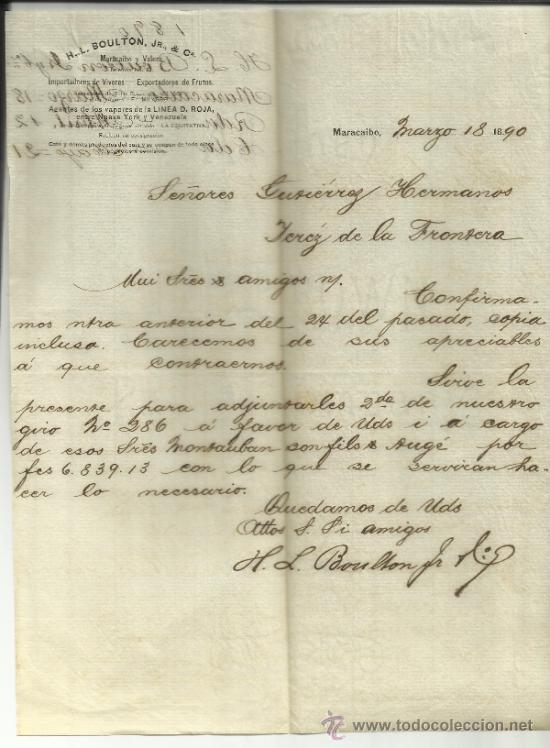 H. L. BOULTON, JR., & Co.
Maracaibo y Valera
Importadores de Víveres Exportadores de Frutos.
Agentes de los vapores de la LINEA D. ROJA,
entre Nueva York y Venezuela
Maracaibo, Marzo 18 1890
Señores Gutiérrez Hermanos
Jeréz de la Frontera
Mui Srēs & amigos n/.
Confirma-
mos ntra anterior del 24 del pasado, copia
inclusa. Carecemos de sus apreciables
á que contraernos.
Sirve la
presente para adjuntarles 2da de nuestro
giro No 286 á favor de Uds i á cargo
de esos Srēs Montauban con fils & Augé por
fcs 6.839.13 con lo que se serviran ha-
cer lo necesario.
Quedamos de Uds
Attos S. S i amigos
H. L. Boulton Jr & Co
© www.todocoleccion.net